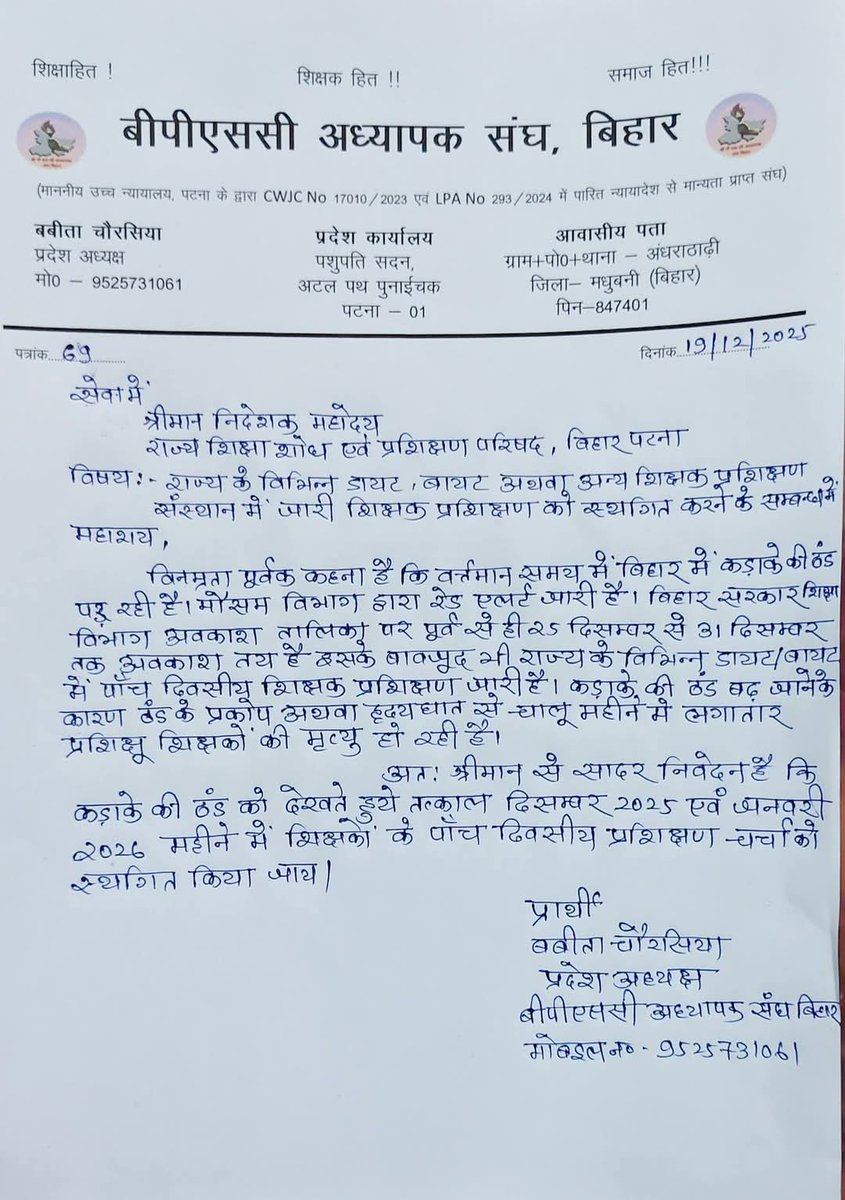 शिक्षाहित !
शिक्षक हित !!
समाज हित!!!
बीपीएससी अध्यापक संघ, बिहार
(माननीय उच्च न्यायालय, पटना के द्वारा CWJC No 17010/2023 एवं LPA No 293/2024 में पारित न्यायादेश से मान्यता प्राप्त संघ)
बबीता चौरसिया
प्रदेश अध्यक्ष
मो0 – 9525731061
प्रदेश कार्यालय
पशुपति सदन,
अटल पथ पुनाईचक
पटना – 01
आवासीय पता
ग्राम+पो0+थाना – अंधराठाढ़ी
जिला– मधुबनी (बिहार)
पिन–847401
पत्रांक....69............
दिनांक..19/12/2025
सेवा में
श्रीमान निदेशक महोदय
राज्य शिक्षा शोध एवं प्रशिक्षण परिषद, बिहार पटना
विषय:- राज्य के विभिन्न डायट, बायट अथवा अन्य शिक्षक प्रशिक्षण
संस्थान में जारी शिक्षक प्रशिक्षण को स्थगित करने के सम्बन्ध में
महाशय,
विनम्रता पूर्वक कहना है कि वर्त्तमान समय में बिहार में कड़ाके की ठंड
पड़ रही है। मौसम विभाग द्वारा रेड एलर्ट जारी है। बिहार सरकार शिक्षा
विभाग अवकाश तालिका पर पूर्व से ही 25 दिसम्बर से 31 दिसम्बर
तक अवकाश तय है इसके बावजूद भी राज्य के विभिन्न डायट/बायट
में पाँच दिवसीय शिक्षक प्रशिक्षण जारी है। कड़ाके की ठंड बढ़ जाने के
कारण ठंड के प्रकोप अथवा हृदयघात से चालू महीने में लगातार
प्रशिक्षू शिक्षकों की मृत्यु हो रही है।
अत: श्रीमान से सादर निवेदन है कि
कड़ाके की ठंड को देखते हुये तत्काल दिसम्बर 2025 एवं जनवरी
2026 महीने में शिक्षकों के पाँच दिवसीय प्रशिक्षण चर्चा को
स्थगित किया जाय।
प्रार्थी
बबीता चौरसिया
प्रदेश अध्यक्ष
बीपीएससी अध्यापक संघ बिहार
मोबइल न० - 9525731061